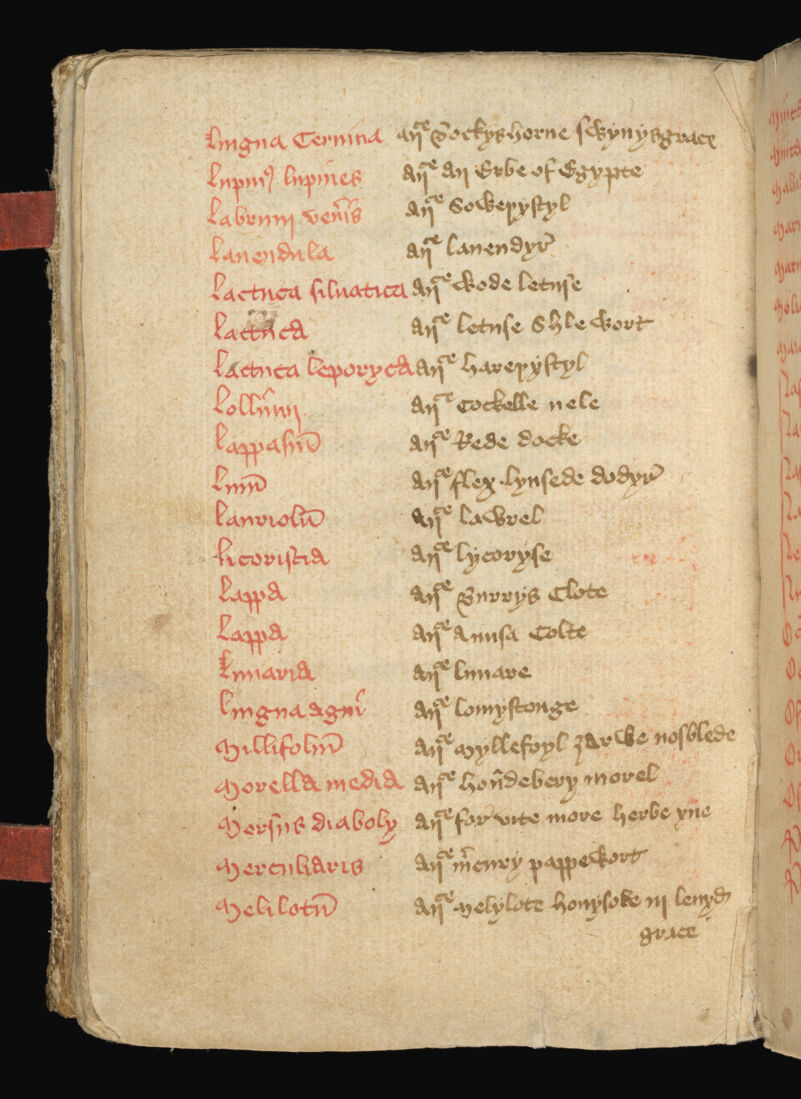 Lingua Ceruina anᵍᵉ Bockyshorne swynysgrace
Lupinꝰ lupines anᵍᵉ an Erbe of Egypte
Labrum ven̄is anᵍᵉ Sowepystyl
Lauendula anᵍᵉ lauendyr̄
Lactuca siluatica anᵍᵉ wode letuse
Lactuca anᵍᵉ letuse Shlewort
Lactuca leporyca anᵍᵉ harepystyl
Lolliū anᵍᵉ Cockelle nele
Lappasiū anᵍᵉ Rede docke
Linū anᵍᵉ flex lynsede dodyr̄
Lauriolū anᵍᵉ lawrel
licoriscia anᵍᵉ lycoryse
Lappa anᵍᵉ Burrys Clote
Lappa anᵍᵉ Anusa Colte
Lunaria anᵍᵉ lunare
Lingua agni anᵍᵉ lomystonge
Millifoliū anᵍᵉ Myllefoyl ȝarwe nosblede
Morella media anᵍᵉ hoūdebery morel
Morsus diaboly anᵍᵉ for vite more herbe yue
Mercuharis anᵍᵉ m̄cury pappewort
Melilotū anᵍᵉ Melylote honysoke iii leuyd
grace